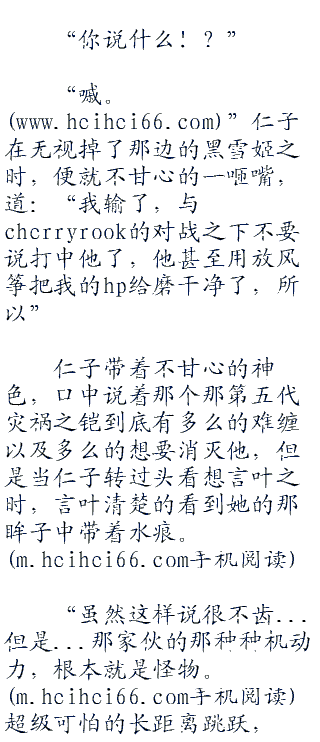 “你说什么！？”
“嘁。
(www.hcihci66.com)”仁子
在无视掉了那边的黑雪姬之
时，便就不甘心的一咂嘴，
道：“我输了，与
cherryrook的对战之下不要
说打中他了，他甚至用放风
筝把我的hp给磨干净了，所
以”
仁子带着不甘心的神
色，口中说着那个那第五代
灾祸之铠到底有多么的难缠
以及多么的想要消灭他，但
是当仁子转过头看想言叶之
时，言叶清楚的看到她的那
眸子中带着水痕。
(m.hcihci66.com手机阅读)
“虽然这样说很不齿...
但是...那家伙的那种种机动
力，根本就是怪物。
(m.hcihci66.com手机阅读)
超级可怕的长距离跳跃，